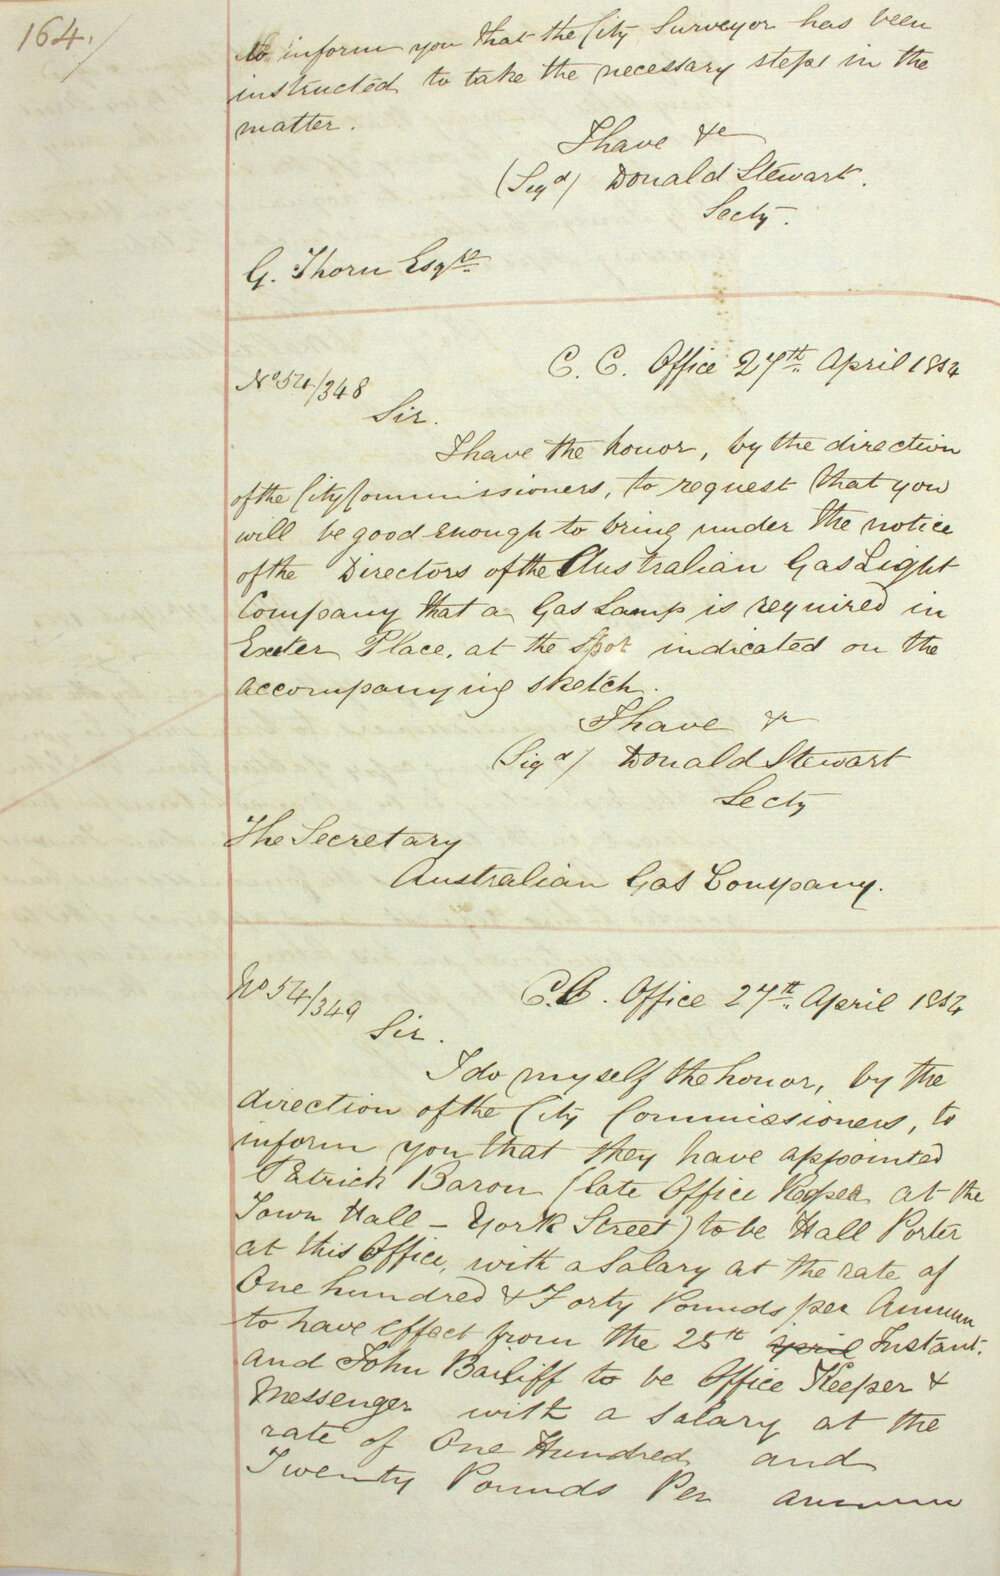 164.
to inform you that the City Surveyor has been
instructed to take the necessary steps in the
matter.
I have &c
(Sigd) Donald Stewart.
Secty.
G. Thorn Esqre
C. C. Office 27th April 1854
No 54/348
Sir.
I have the honor, by the direction
of the City Commissioners, to request that you
will be good enough to bring under the notice
of the Directors of the Australian Gas Light
Company that a Gas Lamp is required in
Exeter Place, at the spot indicated on the
accompanying sketch.
I have &c
(Sigd) Donald Stewart
Secty
The Secretary
Australian Gas Company.
No 54/349
C.C. Office 27th April 1854
Sir.
I do myself the honor, by the
direction of the City Commissioners, to
inform you that they have appointed
Patrick Baron (late Office Keeper at the
Town Hall - York Street) to be Hall Porter
at this Office, with a Salary at the rate of
One hundred & Forty Pounds per Annum
to have effect from the 25th April Instant.
and John Bailiff to be Office Keeper &
Messenger with a salary at the
rate of One Hundred and
Twenty Pounds Per annum